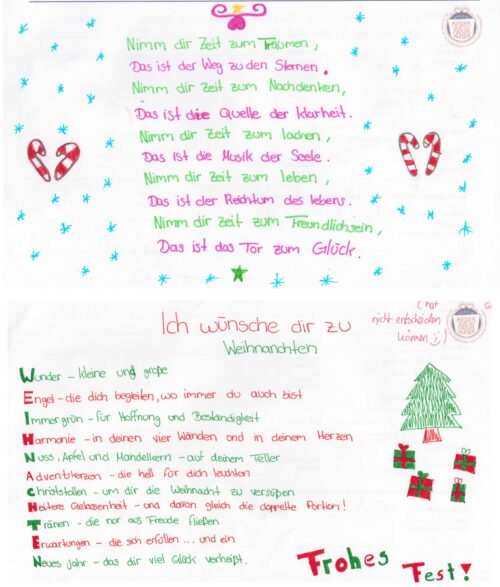 Nimm dir Zeit zum Träumen,
Das ist der Weg zu den Sternen.
Nimm dir Zeit zum Nachdenken,
Das ist die Quelle der Klarheit.
Nimm dir Zeit zum lachen,
Das ist die Musik der Seele.
Nimm dir Zeit zum leben,
Das ist der Reichtum des lebens.
Nimm dir Zeit zum Freundlichsein,
Das ist das Tor zum Glück.
Ich wünsche dir zu
Weihnanchten
( hat
nicht entscheiden
können ;) )
Wunder – kleine und große
Engel – die dich begleiten, wo immer du auch bist
Immergrün – für Hoffnung und Beständigkeit
Harmonie – in deinen vier Wänden und in deinem Herzen
Nuss, Apfel und Mandelkern – auf deinem Teller
Adventskerzen – die hell für dich leuchten
Christstollen – um dir die Weihnacht zu versüßen
Heitere Gelassenheit – und davon gleich die doppelte Portion!
Tränen – die nur aus Freude fließen
Erwartungen – die sich erfüllen ... und ein
Neues Jahr – das dir viel Glück verheißt.
Frohes
Fest!